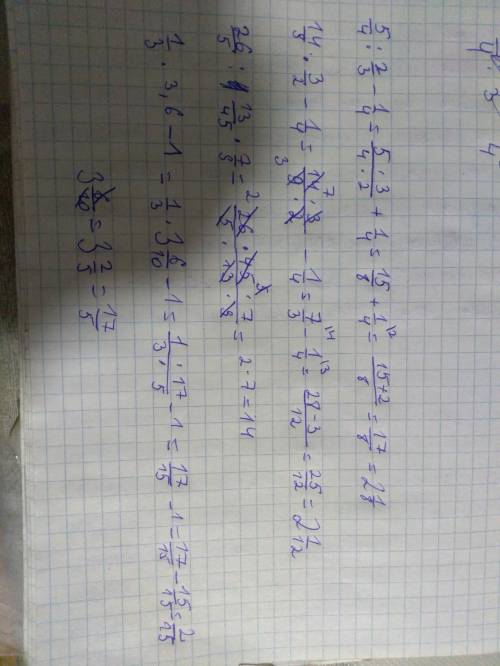 5/4 : 2/3 - 1/4 = 5·3/4·2 + 1/4 = 15/8 + 1/4 = 15+2/8 = 17/8 = 2 1/8
14/9 · 3/2 - 1/4 = 14·3/9·2 - 1/4 = 7/3 - 1/4 = 28-3/12 = 25/12 = 2 1/12
26/5 : 13/45 · 7/9 = 26·45·7/5·13·9 = 2·7=14
1/3 · 3,6 - 1 = 1/3 · 3 6/10 - 1 = 1·17/3·5 - 1 = 17/15 - 1 = 17/15 - 15/15 = 2/15
3 6/10 = 3 2/5 = 17/5